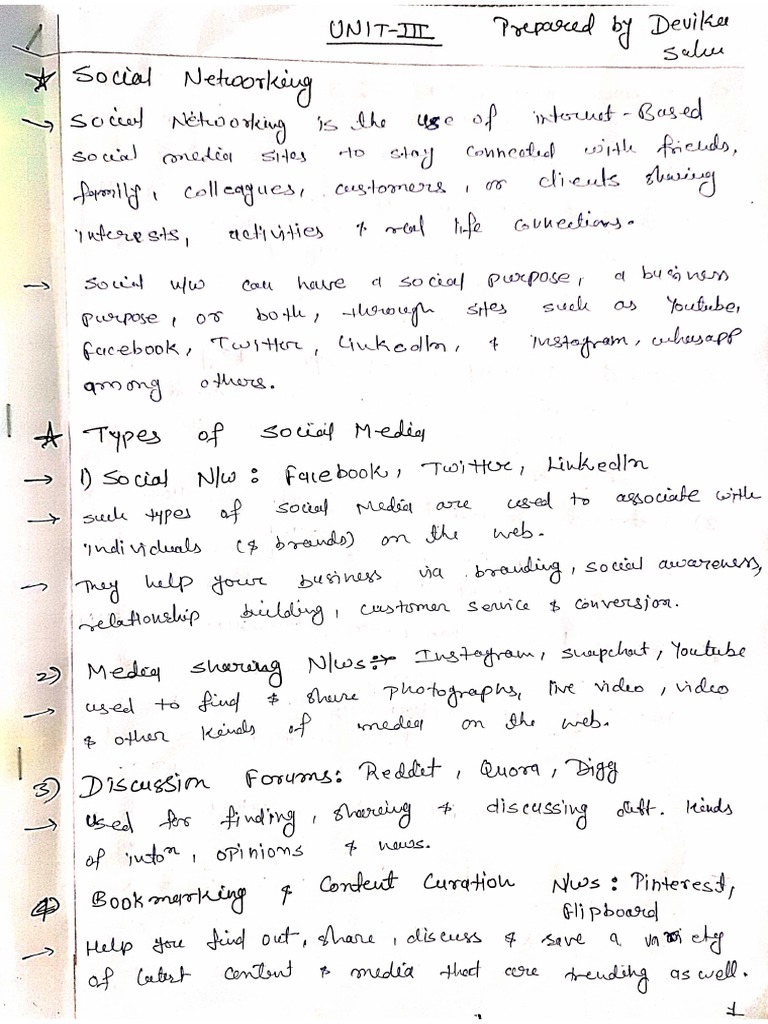 UNIT-III Prepared by Devika
Sahu
☆ Social Networking
→ Social Networking is the use of internet-Based
social media sites to stay connected with friends,
family, colleagues, customers, or clients sharing
interests, activities & real life connections.
→ Social n/w can have a social purpose, a business
purpose, or both, through sites such as Youtube,
facebook, Twitter, LinkedIn, & instagram, whasapp
among others.
☆ Types of Social Media
→ 1) Social N/w: facebook, Twitter, LinkedIn
→ such types of Social Media are used to associate with
individuals (& brands) on the web.
→ They help your business via branding, social awareness,
relationship building, customer service & conversion.
2) Media sharing N/ws:- Instagram, snapchat, Youtube
→ used to find & share photographs, live video, video
& other kinds of media on the web.
3) Discussion Forums: Reddit, Quora, Digg
→ used for finding, sharing & discussing diff. kinds
of infoⁿ, opinions & news.
4) Bookmarking & Content Curation Nws: Pinterest,
flipboard
→ Help you find out, share, discuss & save a variety
of latest content & media that are trending as well.
1